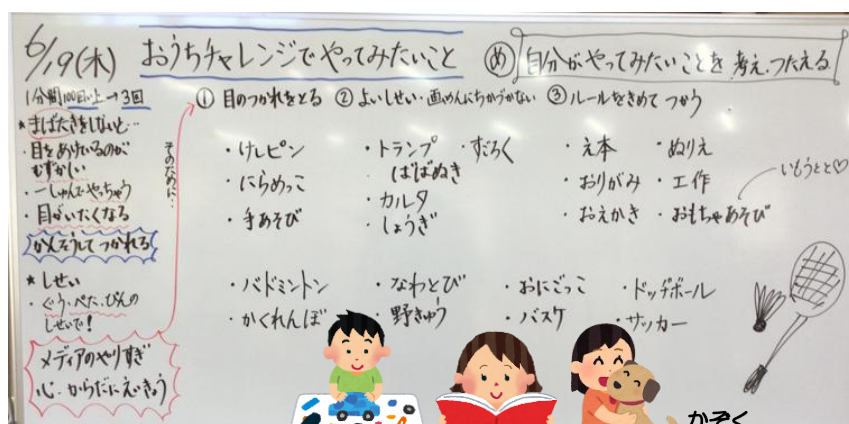 6/19(木)
おうちチャレンジでやってみたいこと
め 自分がやってみたいことを考え、つたえる
1分間100回以上→3回
★まばたきをしないと…
・目をあけているのが
むずかしい
・一しゅんでやっちゃう
・目がいたくなる
かんそうしてつかれる
★しせい
・ぐう・ぺた・ぴんの
しせいで!
メディアのやりすぎ
心・からだにえいきょう
そのために…
① 目のつかれをとる ② よいしせい・画めんにちかづかない ③ ルールをきめて つかう
・けしピン
・にらめっこ
・手あそび
・トランプ ・すごろく
ばばぬき
・カルタ
・しょうぎ
・え本 ・ぬりえ
・おりがみ ・工作
・おえかき ・おもちゃあそび
いもうとと♡
・バドミントン ・なわとび ・おにごっこ ・ドッヂボール
・かくれんぼ ・野きゅう ・バスケ ・サッカー
かぞく